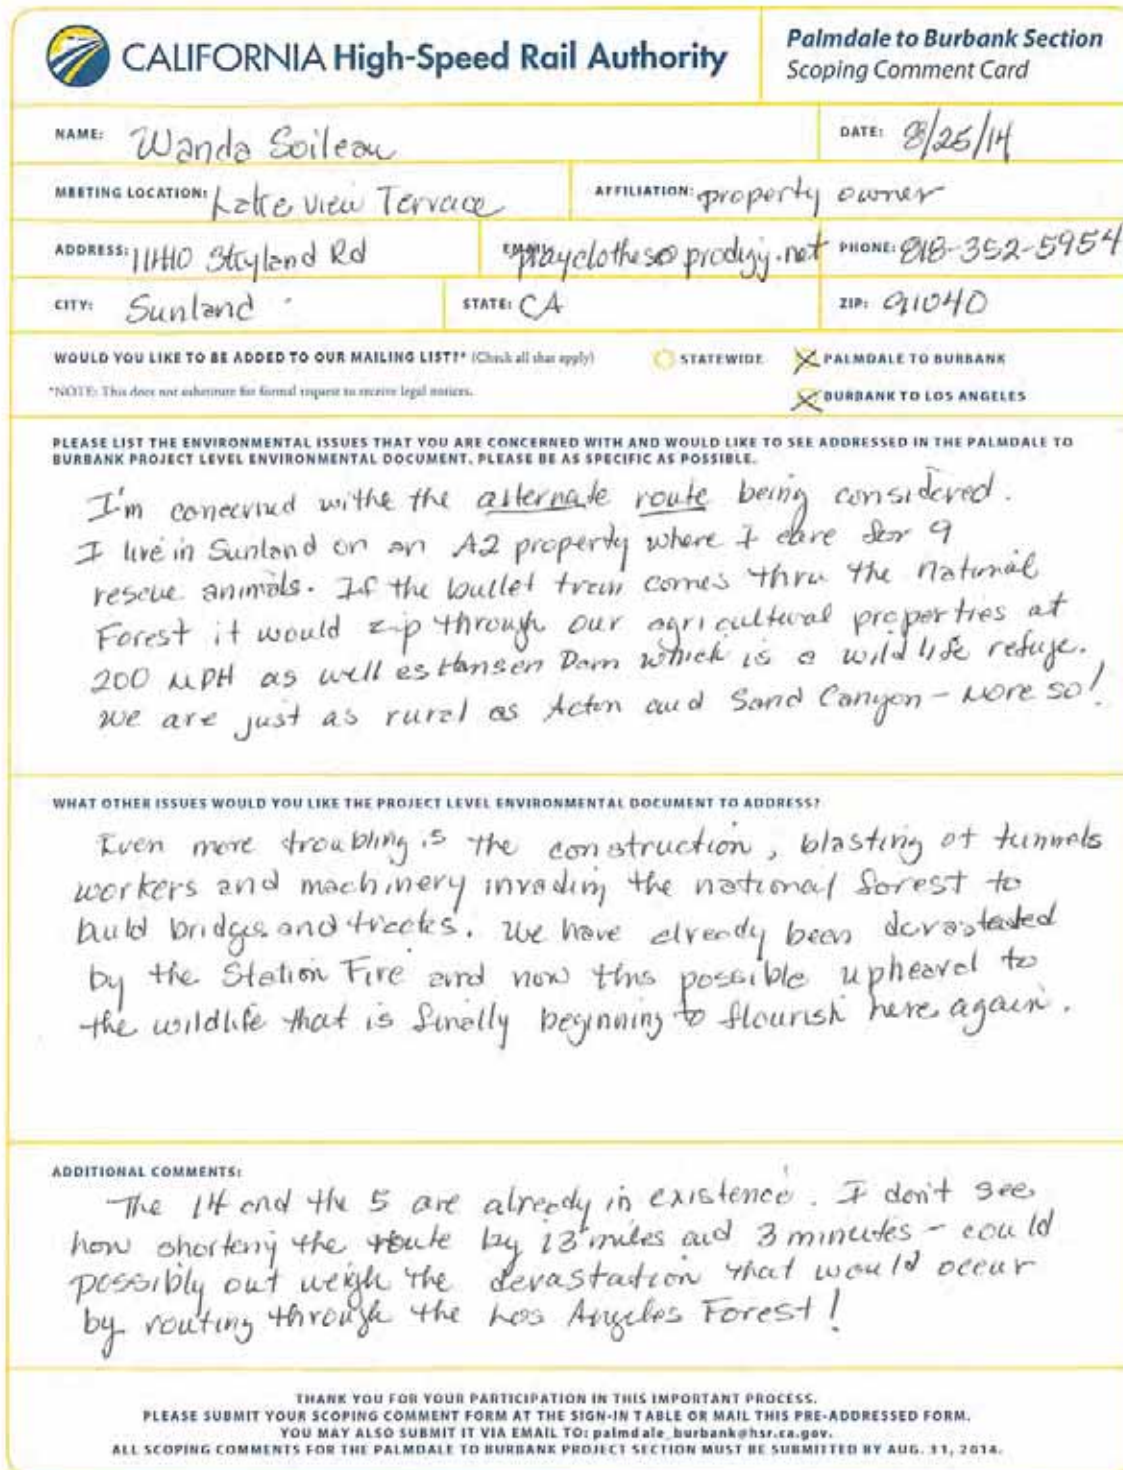 CALIFORNIA High-Speed Rail Authority
Palmdale to Burbank Section
Scoping Comment Card
NAME: Wanda Soileau
DATE: 8/25/14
MEETING LOCATION: Lake View Terrace
AFFILIATION: property owner
ADDRESS: 11440 Skyland Rd
EMAIL: playclothes@prodigy.net
PHONE: 818-352-5954
CITY: Sunland
STATE: CA
ZIP: 91040
WOULD YOU LIKE TO BE ADDED TO OUR MAILING LIST?* (Check all that apply)
STATEWIDE
PALMDALE TO BURBANK
*NOTE: This does not substitute for formal request to receive legal notices.
BURBANK TO LOS ANGELES
PLEASE LIST THE ENVIRONMENTAL ISSUES THAT YOU ARE CONCERNED WITH AND WOULD LIKE TO SEE ADDRESSED IN THE PALMDALE TO
BURBANK PROJECT LEVEL ENVIRONMENTAL DOCUMENT. PLEASE BE AS SPECIFIC AS POSSIBLE.
I'm concerned withe the alternate route being considered.
I live in Sunland on an A2 property where I care for 9
rescue animals. If the bullet train comes thru the National
Forest it would zip through our agricultural properties at
200 MPH as well as Hansen Dam which is a wildlife refuge.
We are just as rural as Acton and Sand Canyon - more so!
WHAT OTHER ISSUES WOULD YOU LIKE THE PROJECT LEVEL ENVIRONMENTAL DOCUMENT TO ADDRESS?
Even more troubling is the construction, blasting of tunnels
workers and machinery invading the national forest to
build bridges and tracks. We have already been devastated
by the Station Fire and now this possible upheavel to
the wildlife that is finally beginning to flourish here again.
ADDITIONAL COMMENTS:
The 14 and the 5 are already in existence. I don't see
how shorteny the route by 13 miles and 3 minutes - could
possibly out weigh the devastation that would occur
by routing through the Los Angeles Forest!
THANK YOU FOR YOUR PARTICIPATION IN THIS IMPORTANT PROCESS.
PLEASE SUBMIT YOUR SCOPING COMMENT FORM AT THE SIGN-IN TABLE OR MAIL THIS PRE-ADDRESSED FORM.
YOU MAY ALSO SUBMIT IT VIA EMAIL TO: palmdale_burbank@hsr.ca.gov.
ALL SCOPING COMMENTS FOR THE PALMDALE TO BURBANK PROJECT SECTION MUST BE SUBMITTED BY AUG. 31, 2014.